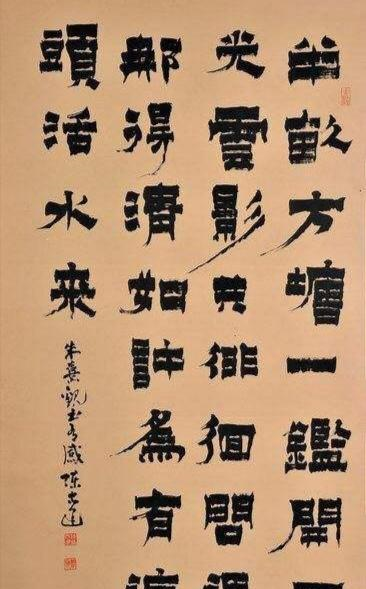 半畝方塘一鑑開
光雲影共徘徊問
那得清如許為有
頭活水来
朱熹觀书有感